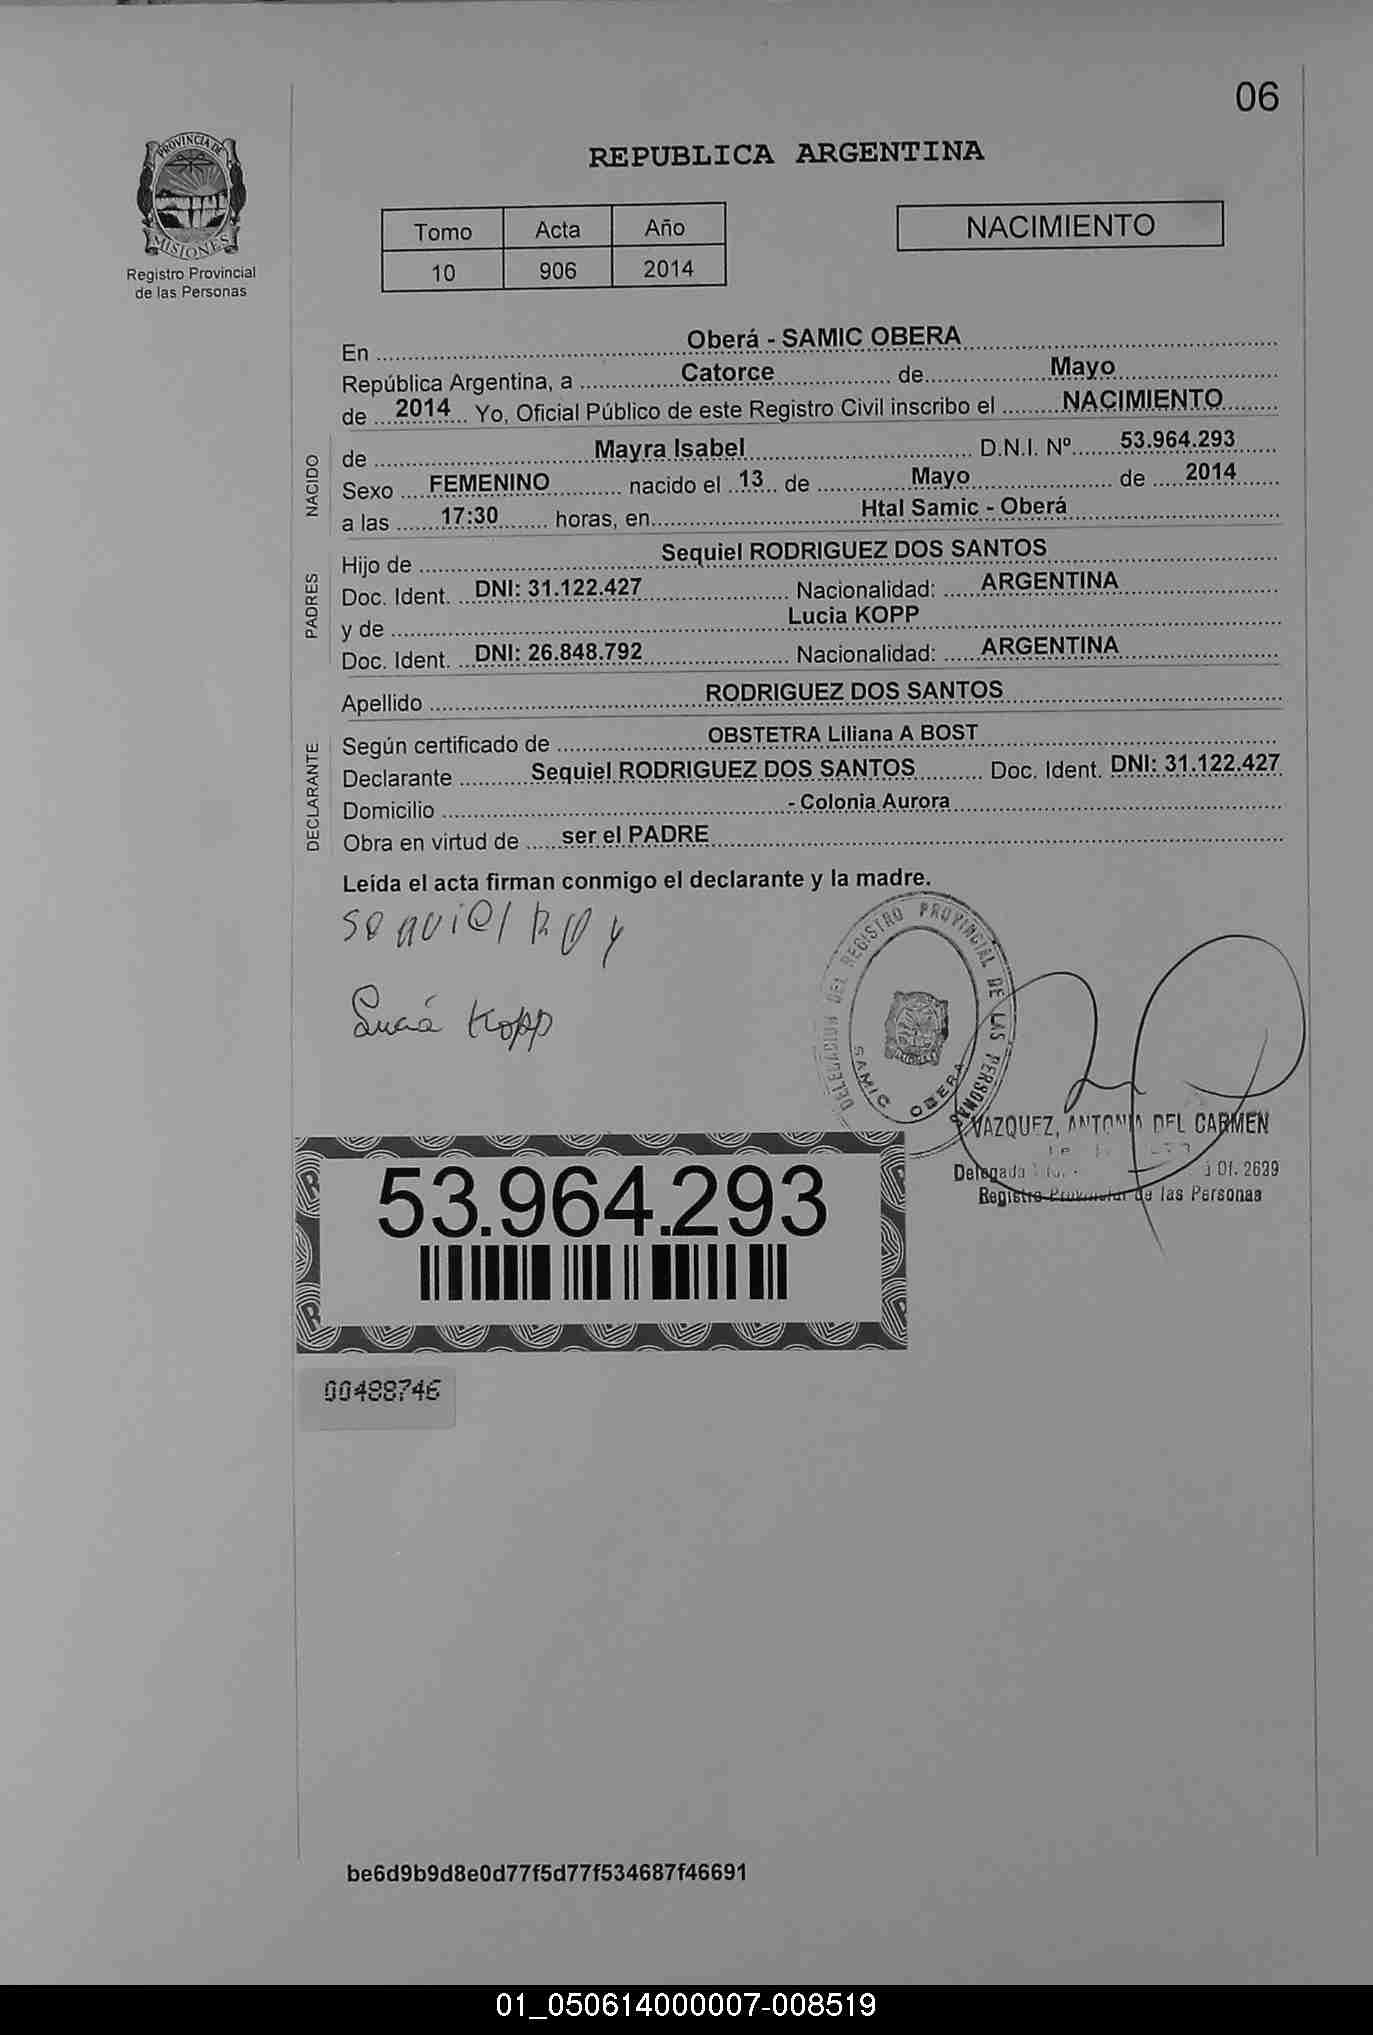 06
PROVINCIA DE
MISIONES
Registro Provincial
de las Personas
REPUBLICA ARGENTINA
Tomo Acta Año
10 906 2014
NACIMIENTO
En Oberá - SAMIC OBERA
República Argentina, a Catorce de Mayo
de 2014 Yo, Oficial Público de este Registro Civil inscribo el NACIMIENTO
NACIDO
de Mayra Isabel D.N.I. Nº 53.964.293
Sexo FEMENINO nacido el 13 de Mayo de 2014
a las 17:30 horas, en Htal Samic - Oberá
PADRES
Hijo de Sequiel RODRIGUEZ DOS SANTOS
Doc. Ident. DNI: 31.122.427 Nacionalidad: ARGENTINA
y de Lucia KOPP
Doc. Ident. DNI: 26.848.792 Nacionalidad: ARGENTINA
Apellido RODRIGUEZ DOS SANTOS
DECLARANTE
Según certificado de OBSTETRA Liliana A BOST
Declarante Sequiel RODRIGUEZ DOS SANTOS Doc. Ident. DNI: 31.122.427
Domicilio - Colonia Aurora
Obra en virtud de ser el PADRE
Leída el acta firman conmigo el declarante y la madre.
Lucía Kopp
DELEGACION DEL REGISTRO PROVINCIAL DE LAS PERSONAS
SAMIC OBERA
VAZQUEZ, ANTONIA DEL CARMEN
Delegada Of. 2639
Registro Provincial de las Personas
53.964.293
00488746
be6d9b9d8e0d77f5d77f534687f46691
01_050614000007-008519